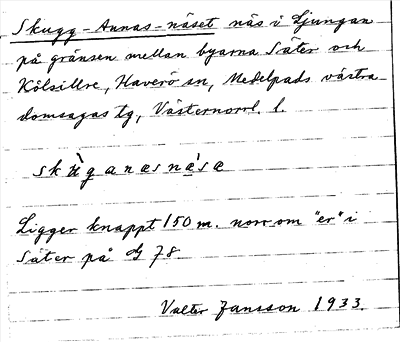 Skugg-Annas-näset näs i Ljungan
på gränsen mellan byarna Säter och
Kölsillre, Haverö sn, Medelpads västra
domsagas tg, Västernorrl. l.
skù̀ganæsnæ̀sæ
Ligger knappt 150 m. norr om "er" i
Säter på G 78.
Valter Jansson 1933.